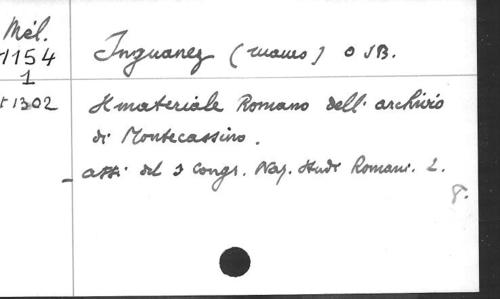 Mél.
1154
1
t 1302
Inguanez (Mauro) OSB.
Il materiale Romano dell' archivio
di Montecassino.
- atti del 3 Congr. Naz. Studi Romani. 2.
8.